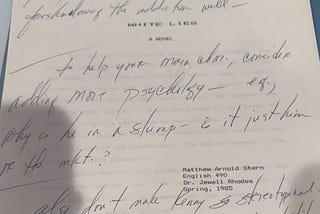 foreshadowing the addiction well —
WHITE LIES
A NOVEL
To help your main char, consider
adding more psychology — eg,
why is he in a slump — is it just him
or the mkt.?
Matthew Arnold Stern
English 490
Dr. Jewell Rhodes
Spring, 1985
also don't make Kenny so stereotypical